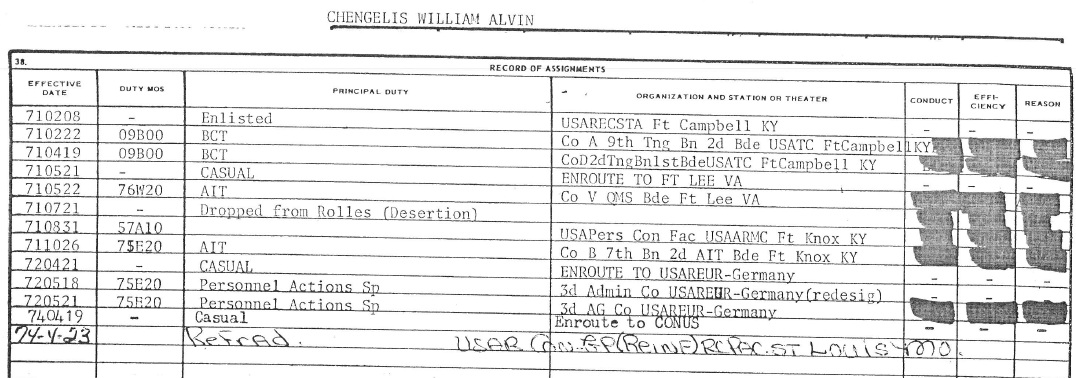 CHENGELIS WILLIAM ALVIN
38.
RECORD OF ASSIGNMENTS
EFFECTIVE DATE DUTY MOS PRINCIPAL DUTY ORGANIZATION AND STATION OR THEATER CONDUCT EFFI-CIENCY REASON
710208 - Enlisted USARECSTA Ft Campbell KY - - -
710222 09B00 BCT Co A 9th Tng Bn 2d Bde USATC FtCampbellKY
710419 09B00 BCT CoD2dTngBn1stBdeUSATC FtCampbell KY
710521 - CASUAL ENROUTE TO FT LEE VA - - -
710522 76W20 AIT Co V QMS Bde Ft Lee VA
710721 - Dropped from Rolles (Desertion)
710831 57A10 USAPers Con Fac USAARMC Ft Knox KY
711026 75E20 AIT Co B 7th Bn 2d AIT Bde Ft Knox KY
720421 - CASUAL ENROUTE TO USAREUR-Germany - - -
720518 75E20 Personnel Actions Sp 3d Admin Co USAREUR-Germany(redesig) - - -
720521 75E20 Personnel Actions Sp 3d AG Co USAREUR-Germany
740419 - Casual Enroute to CONUS - - -
74-4-23 Refrad. USAR CON. GP (Reinf) RCPAC. ST LOUIS, MO.